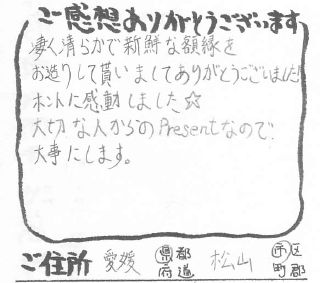 ご感想ありがとうございます
凄く清らかで新鮮な額縁を
お造りして貰いましてありがとうございました!
ホントに感動しました☆
大切な人からのPresentなので
大事にします。
ご住所 愛媛 県都府道 松山 市区町郡